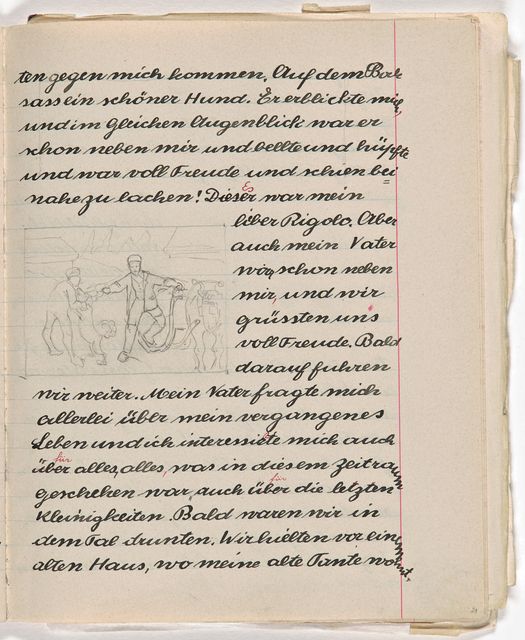 ten gegen mich kommen. Auf dem Bock
sass ein schöner Hund. Er erblickte mich,
und im gleichen Augenblick war er
schon neben mir und bellte und hüpfte
und war voll Freude und schien bei
nahe zu lachen! Dieser war mein
Es
liber Rigolo. Aber
auch mein Vater
war schon neben
mir, und wir
grüssten uns
voll Freude. Bald
darauf fuhren
wir weiter. Mein Vater fragte mich
allerlei über mein vergangenes
Leben und ich interessierte mich auch
für
über alles, alles, was in diesem Zeitraum
geschehen war, auch über die letzten
für
Kleinigkeiten. Bald waren wir in
dem Tal drunten. Wir hielten vor einem
alten Haus, wo meine alte Tante wohnt.